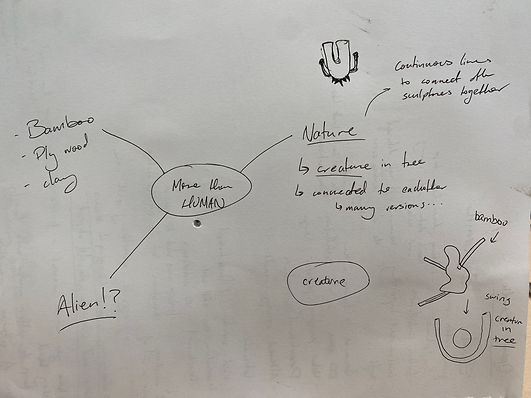 - Bamboo
- Ply wood
- clay
More than
HUMAN
Alien!?
Nature
↳ creature in tree
↳ connected to each other
↳ many versions...
continuous lines
to connect the
sculptures together
creature
bamboo
swing
creature
in
tree